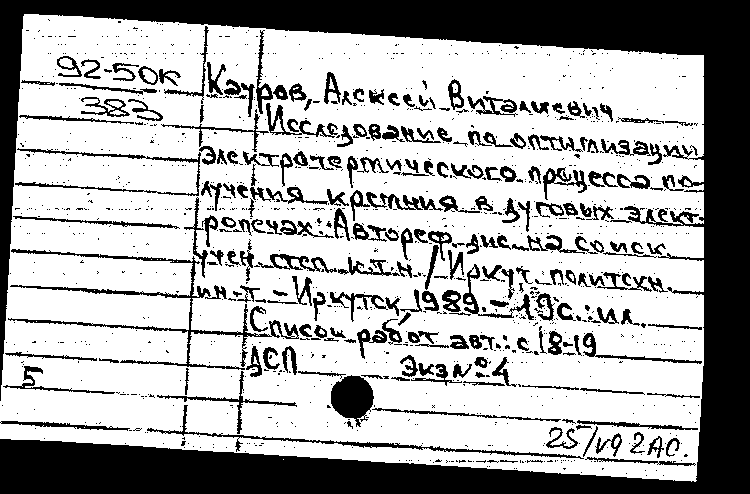 92-50к
383
Кауров, Алексей Виталиевич
Исследование по оптимизации
электротермического процесса по-
лучения кремния в дуговых элект-
ропечах: Автореф. дис. на соиск.
учен. степ. к.т.н. / Иркут. политехн.
ин-т. - Иркутск, 1989. - 19с.: ил.
Список работ авт.: с.18-19
ДСП Экз №4
5